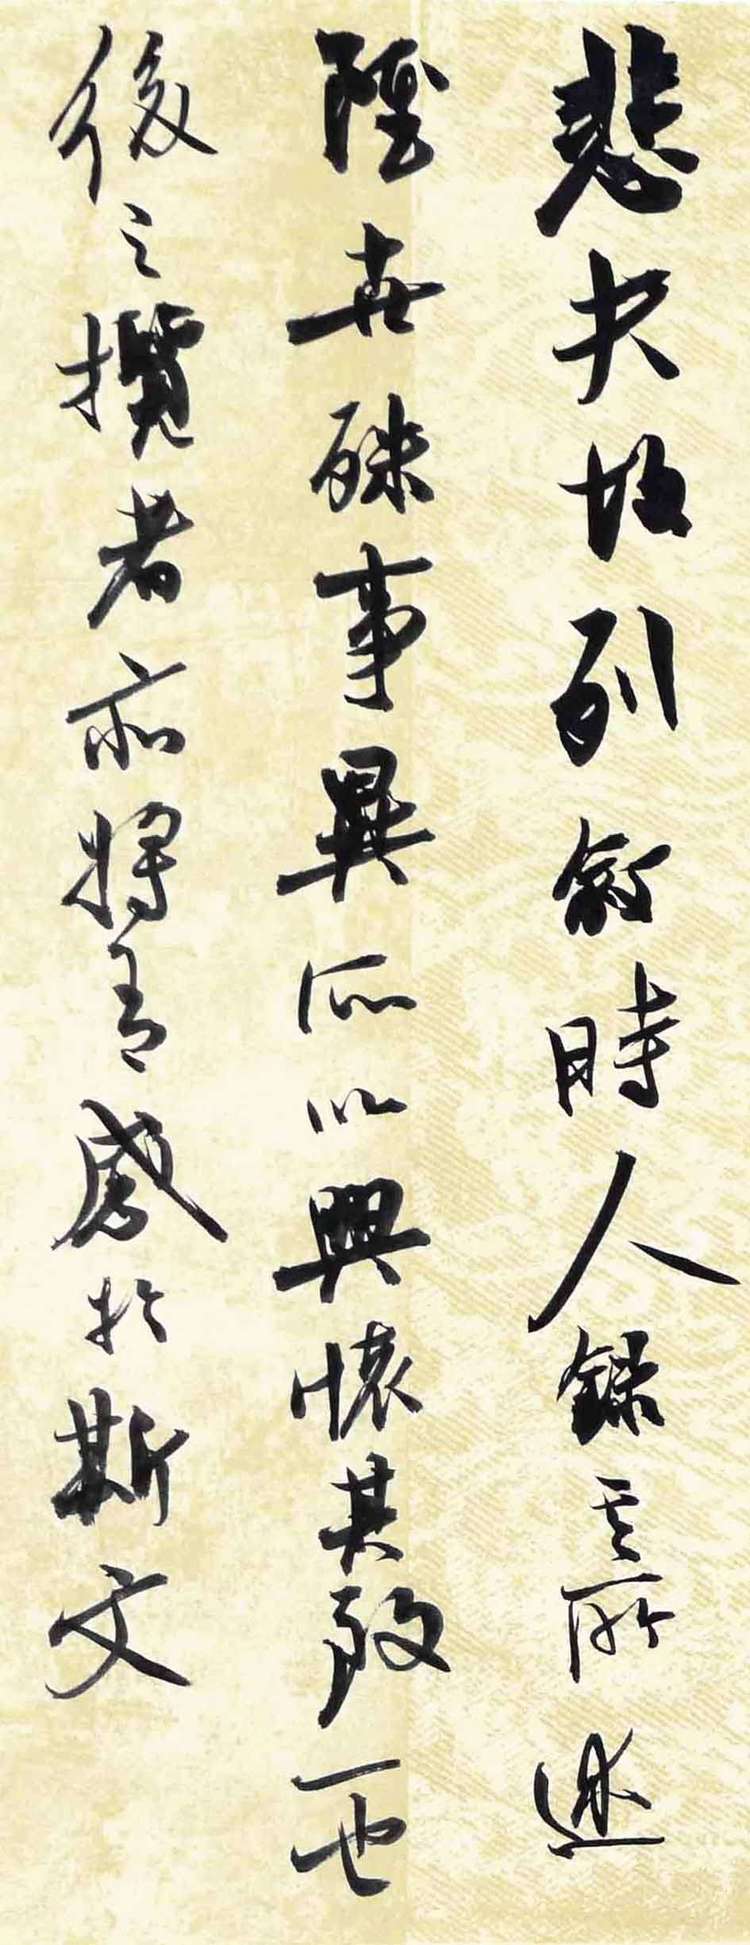 悲夫故列敘時人錄其所述
雖世殊事異所以興懷其致一也
後之攬者亦將有感於斯文